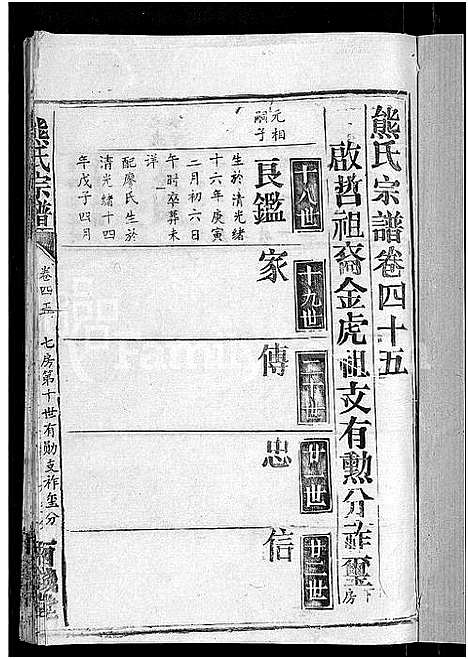 熊氏宗譜卷四十五
啟哲祖裔金虎祖支有勲分祚璽房下
十八世
十九世
二十世
廿一世
廿二世
元相嗣子
良鑑
家
傳
忠
信
生於清光緒
十六年庚寅
二月初六日
午時卒葬未
洋
配廖氏生於
清光緒十四
年戊子四月
熊氏宗譜
卷四五
七房第十世有勛支祚璽分